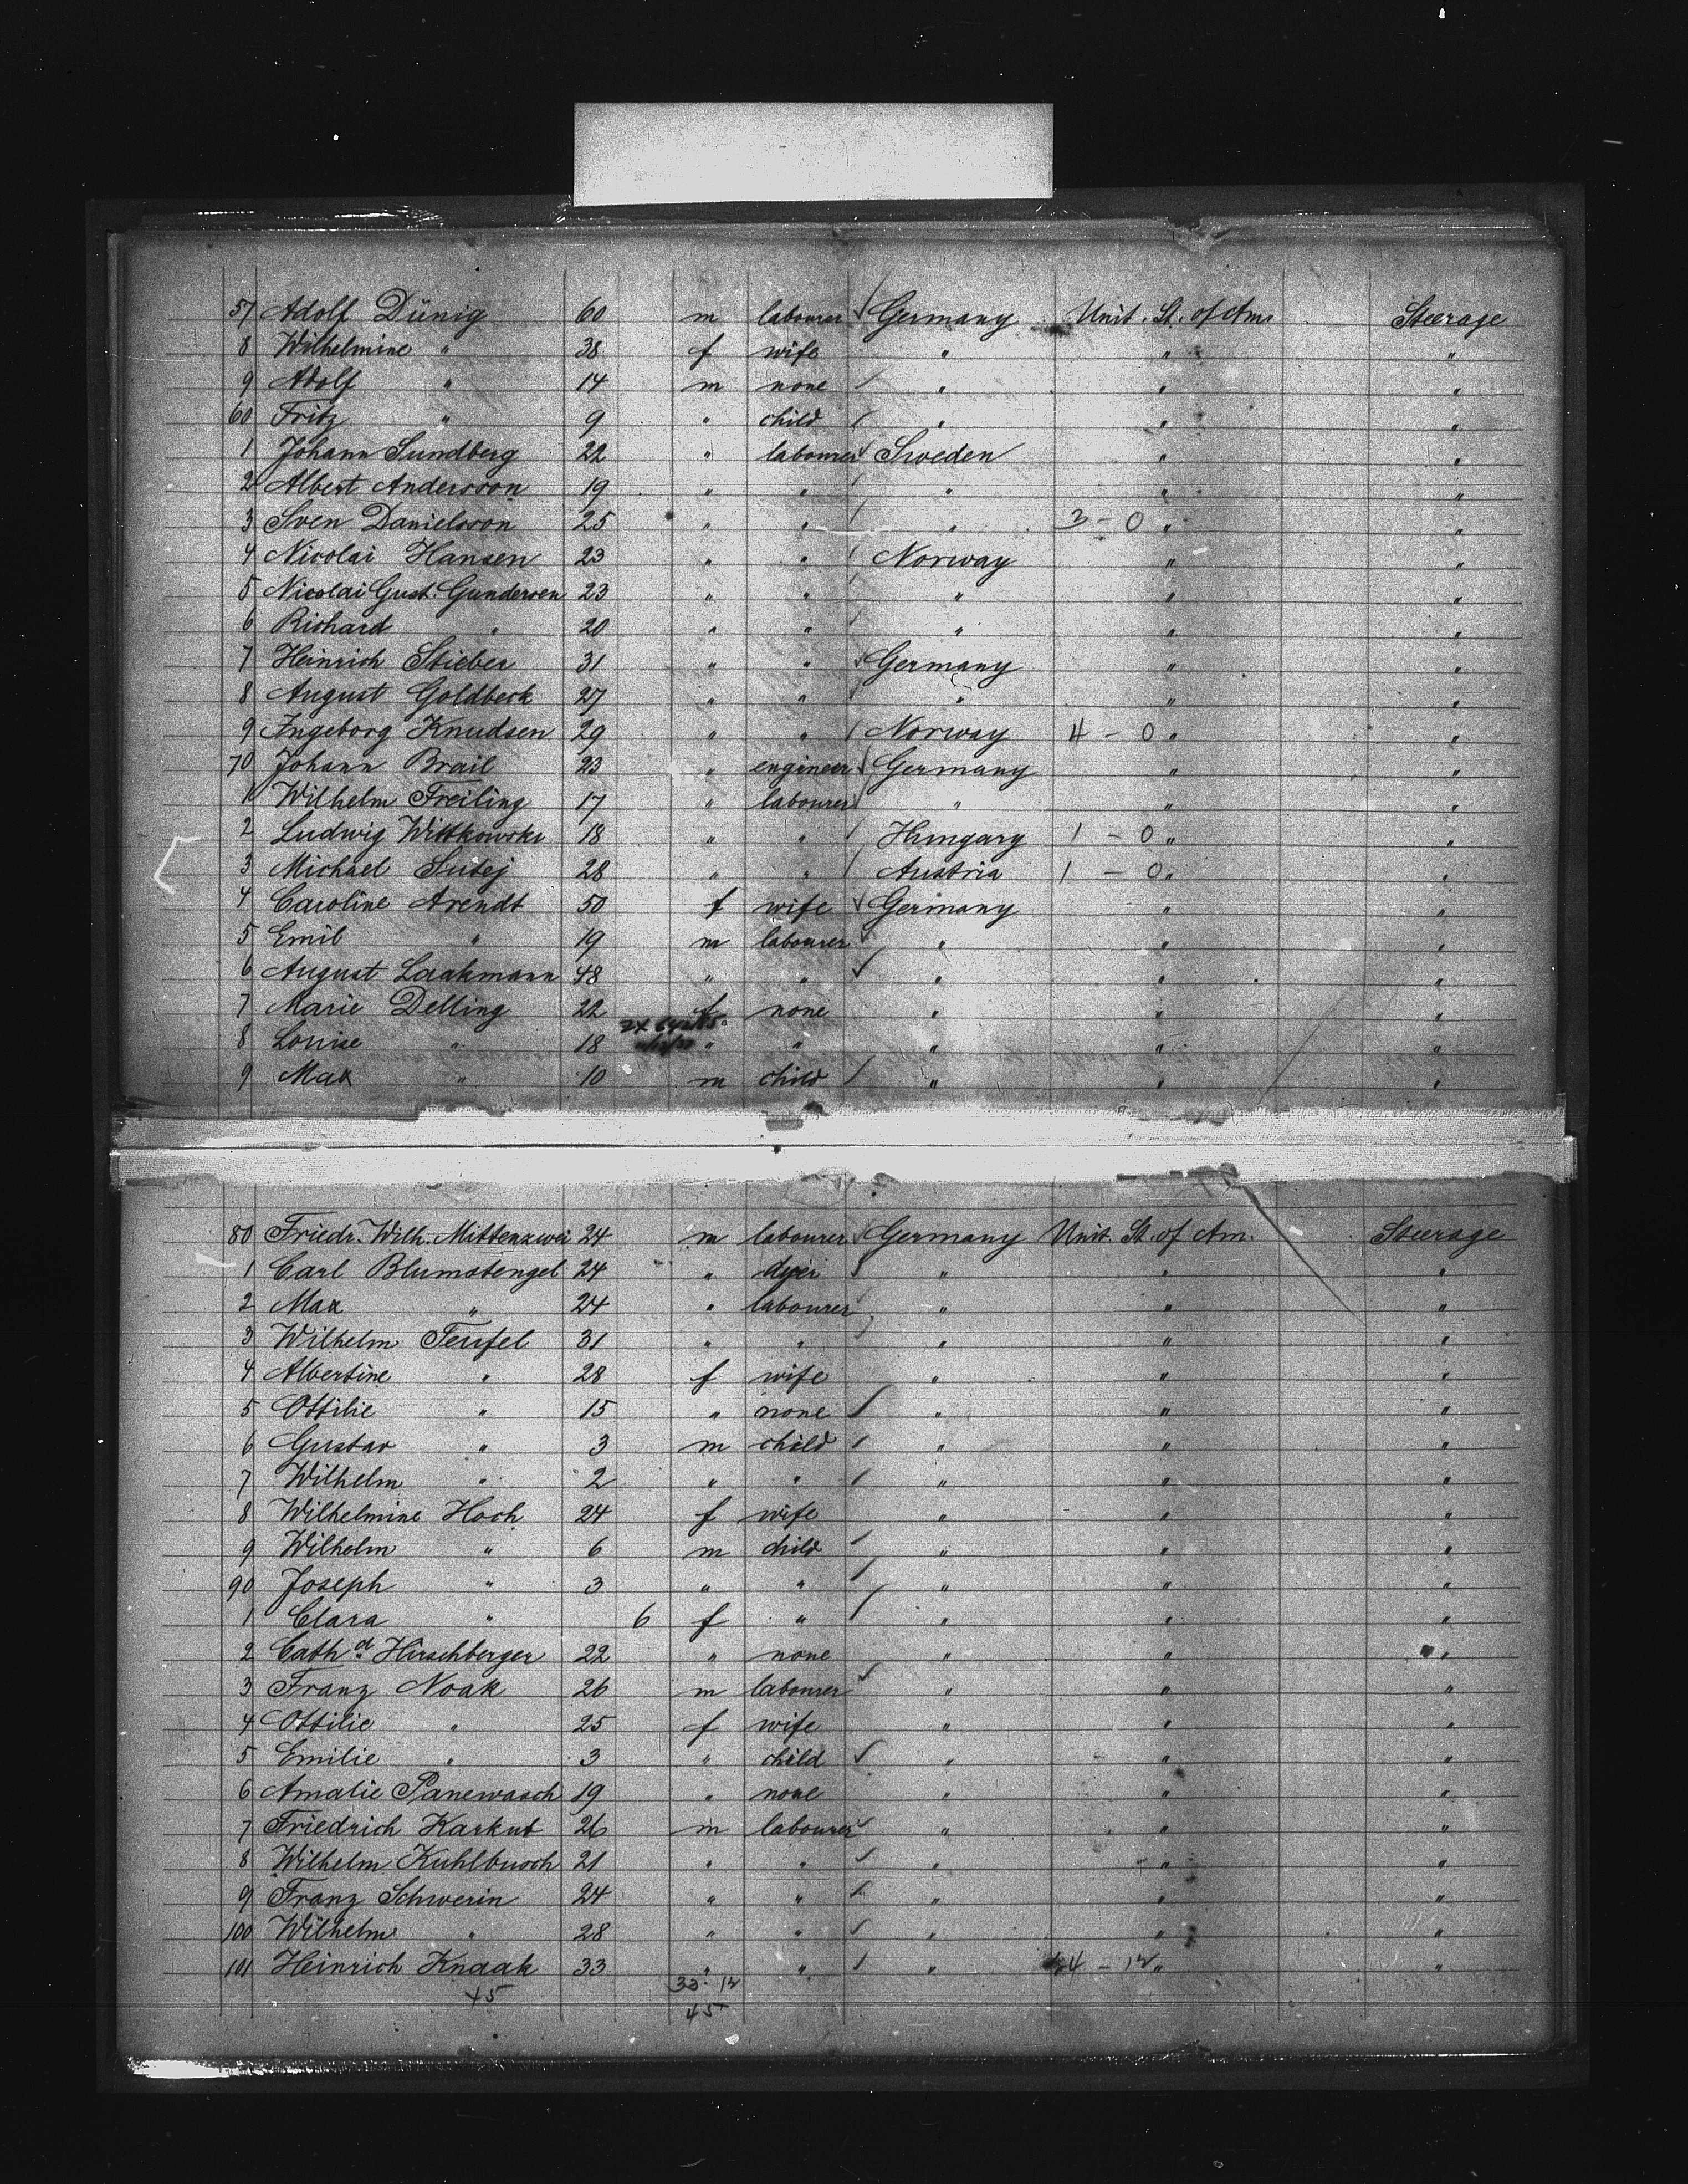 57 Adolf Dünig 60 m labourer Germany Unit. St. of Am. Steerage
8 Wilhelmine " 38 f wife " " "
9 Adolf " 14 m none " " "
60 Fritz " 9 " child " " "
1 Johann Sundberg 22 " labourer Sweden " "
2 Albert Andersson 19 " " " " "
3 Sven Danielsson 25 " " " 3 - 0 " "
4 Nicolai Hansen 23 " " Norway " "
5 Nicolai Gust. Gundersen 23 " " " " "
6 Richard " 20 " " " " "
7 Heinrich Stieber 31 " " Germany " "
8 August Goldbeck 27 " " " " "
9 Ingeborg Knudsen 29 " " Norway 4 - 0 " "
70 Johann Brail 23 " engineer Germany " "
1 Wilhelm Freiling 17 " labourer " " "
2 Ludwig Wittkowski 18 " " Hungary 1 - 0 " "
3 Michael Sutej 28 " " Austria 1 - 0 " "
4 Caroline Arendt 50 f wife Germany " "
5 Emil " 19 m labourer " " "
6 August Laakmann 48 " " " " "
7 Marie Delling 22 f none " " "
8 Louise " 18 " " " " "
9 Max " 10 m child " " "
80 Friedr. Wilh. Mittenzwei 24 m labourer Germany Unit. St. of Am. Steerage
1 Carl Blumstengel 24 " dyer " " "
2 Max " 24 " labourer " " "
3 Wilhelm Teufel 31 " " " " "
4 Albertine " 28 f wife " " "
5 Ottilie " 15 " none " " "
6 Gustav " 3 m child " " "
7 Wilhelm " 2 " " " " "
8 Wilhelmine Hoch 24 f wife " " "
9 Wilhelm " 6 m child " " "
90 Joseph " 3 " " " " "
1 Clara " 6 f " " " "
2 Cath.a Hirschberger 22 " none " " "
3 Franz Noak 26 m labourer " " "
4 Ottilie " 25 f wife " " "
5 Emilie " 3 " child " " "
6 Amalie Panewasch 19 " none " " "
7 Friedrich Karkut 26 m labourer " " "
8 Wilhelm Kuhlbusch 21 " " " " "
9 Franz Schwerin 24 " " " " "
100 Wilhelm " 28 " " " " "
101 Heinrich Knaak 33 " " " 12 " "
45 33 - 12
45